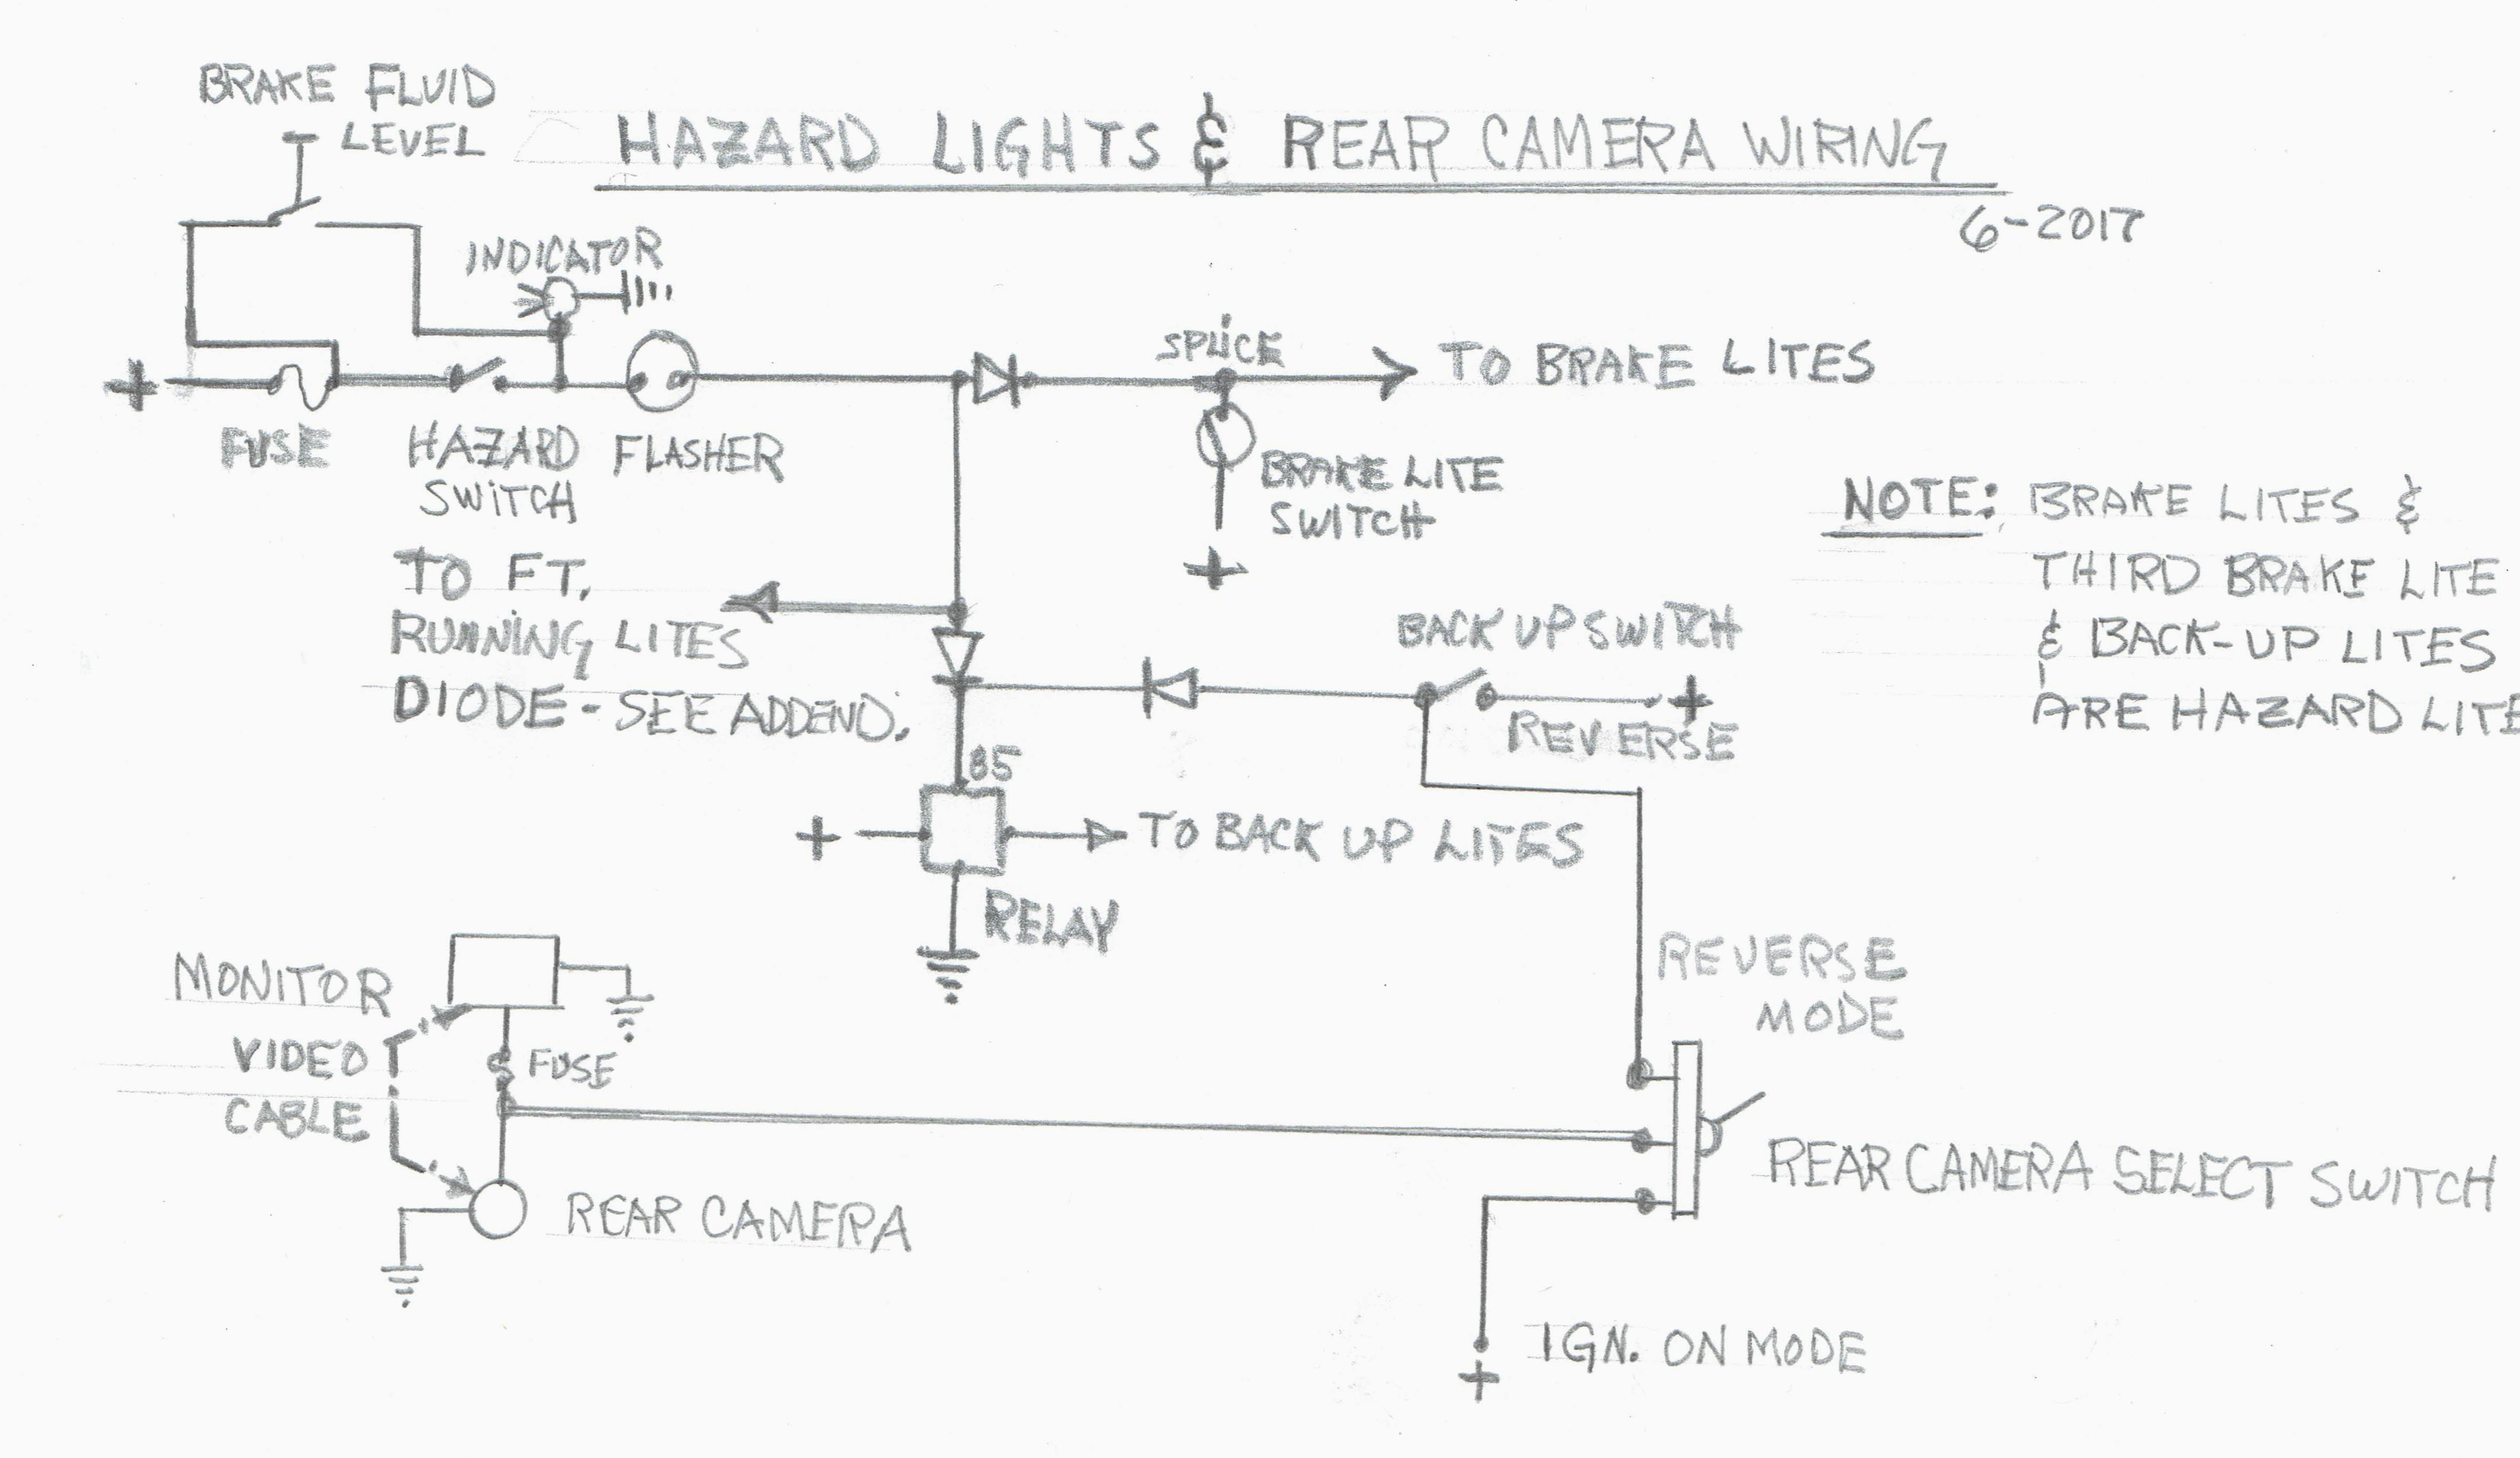 HAZARD LIGHTS & REAR CAMERA WIRING
6-2017
BRAKE FLUID
LEVEL
INDICATOR
+
FUSE
HAZARD
SWITCH
FLASHER
SPLICE
TO BRAKE LITES
BRAKE LITE
SWITCH
+
NOTE: BRAKE LITES &
THIRD BRAKE LITE
& BACK-UP LITES
ARE HAZARD LITE
TO FT.
RUNNING LITES
DIODE - SEE ADDEND.
BACK UP SWITCH
+
REVERSE
85
+
TO BACK UP LITES
RELAY
MONITOR
VIDEO
CABLE
FUSE
REAR CAMERA
REVERSE
MODE
REAR CAMERA SELECT SWITCH
IGN. ON MODE
+